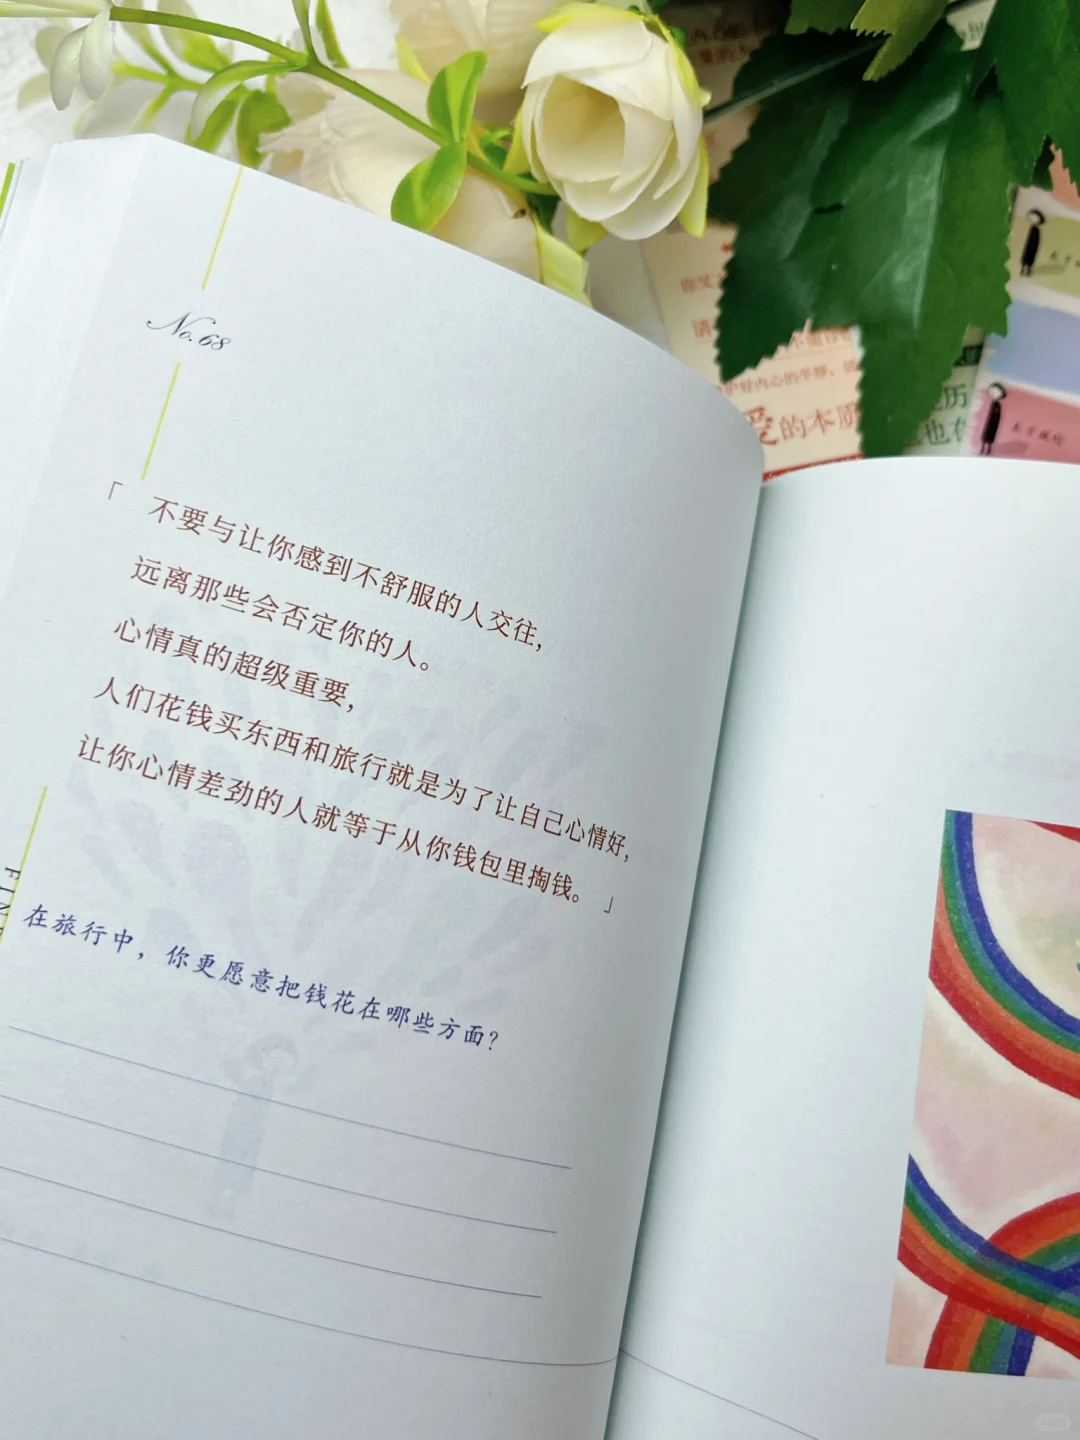 No.68
「 不要与让你感到不舒服的人交往,
远离那些会否定你的人。
心情真的超级重要,
人们花钱买东西和旅行就是为了让自己心情好,
让你心情差劲的人就等于从你钱包里掏钱。 」
在旅行中，你更愿意把钱花在哪些方面？
爱的本质